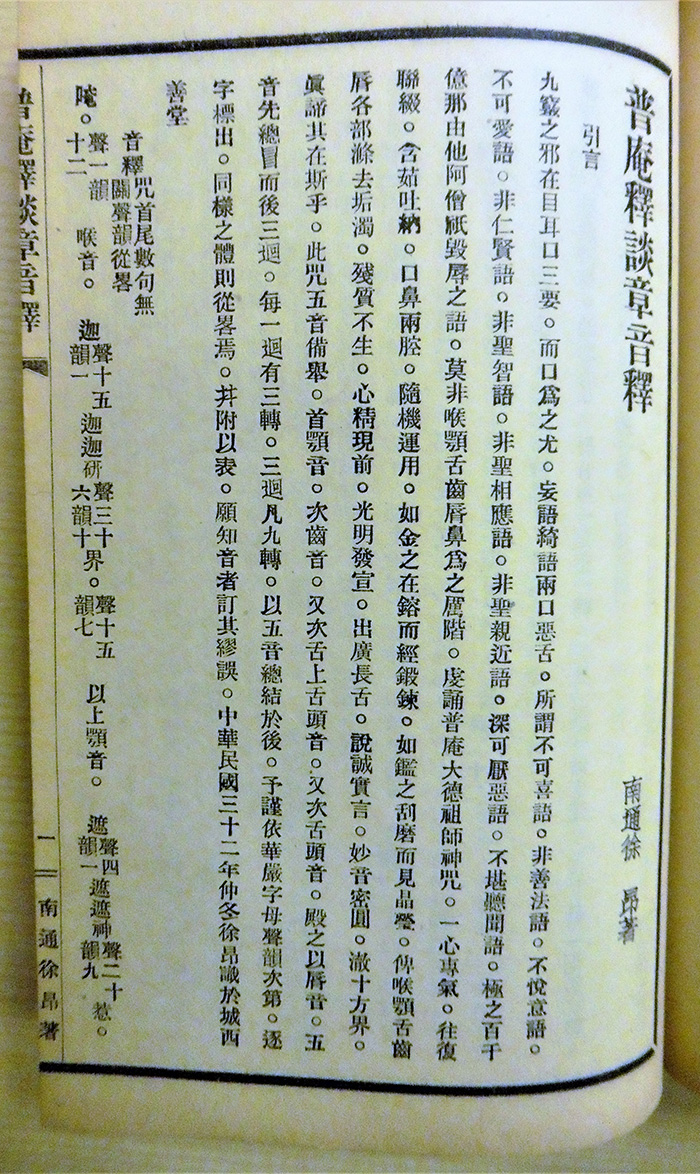 普庵釋談章音釋
南通徐 昂著
引言
九竅之邪在目耳口三要。而口爲之尤。妄語綺語兩口惡舌。所謂不可喜語。非善法語。不悅意語。
不可愛語。非仁賢語。非聖智語。非聖相應語。非聖親近語。深可厭惡語。不堪聽聞語。極之百千
億那由他阿僧祇毀辱之語。莫非喉顎舌齒唇鼻爲之厲階。虔誦普庵大德祖師神咒。一心專氣。往復
聯綴。含茹吐納。口鼻兩腔。隨機運用。如金之在鎔而經鍛鍊。如鑑之刮磨而見晶瑩。俾喉顎舌齒
唇各部滌去垢濁。殘質不生。心精現前。光明發宣。出廣長舌。說誠實言。妙音密圓。澈十方界。
眞諦其在斯乎。此咒五音備舉。首顎音。次齒音。又次舌上舌頭音。又次舌頭音。殿之以唇音。五
音先總冒而後三迴。每一迴有三轉。三迴凡九轉。以五音總結於後。予謹依華嚴字母聲韻次第。逐
字標出。同樣之體則從畧焉。幷附以表。願知音者訂其繆誤。中華民國三十二年仲冬徐昂識於城西
善堂
音釋 咒首尾數句無關聲韻從畧
唵。聲一韻十二 喉音。 迦聲十五韻一 迦迦研聲三十六韻十 界。聲十五韻七 以上顎音。 遮聲四韻一 遮遮神聲二十韻九 惹。
普庵釋談章音釋
一
南通徐昂著